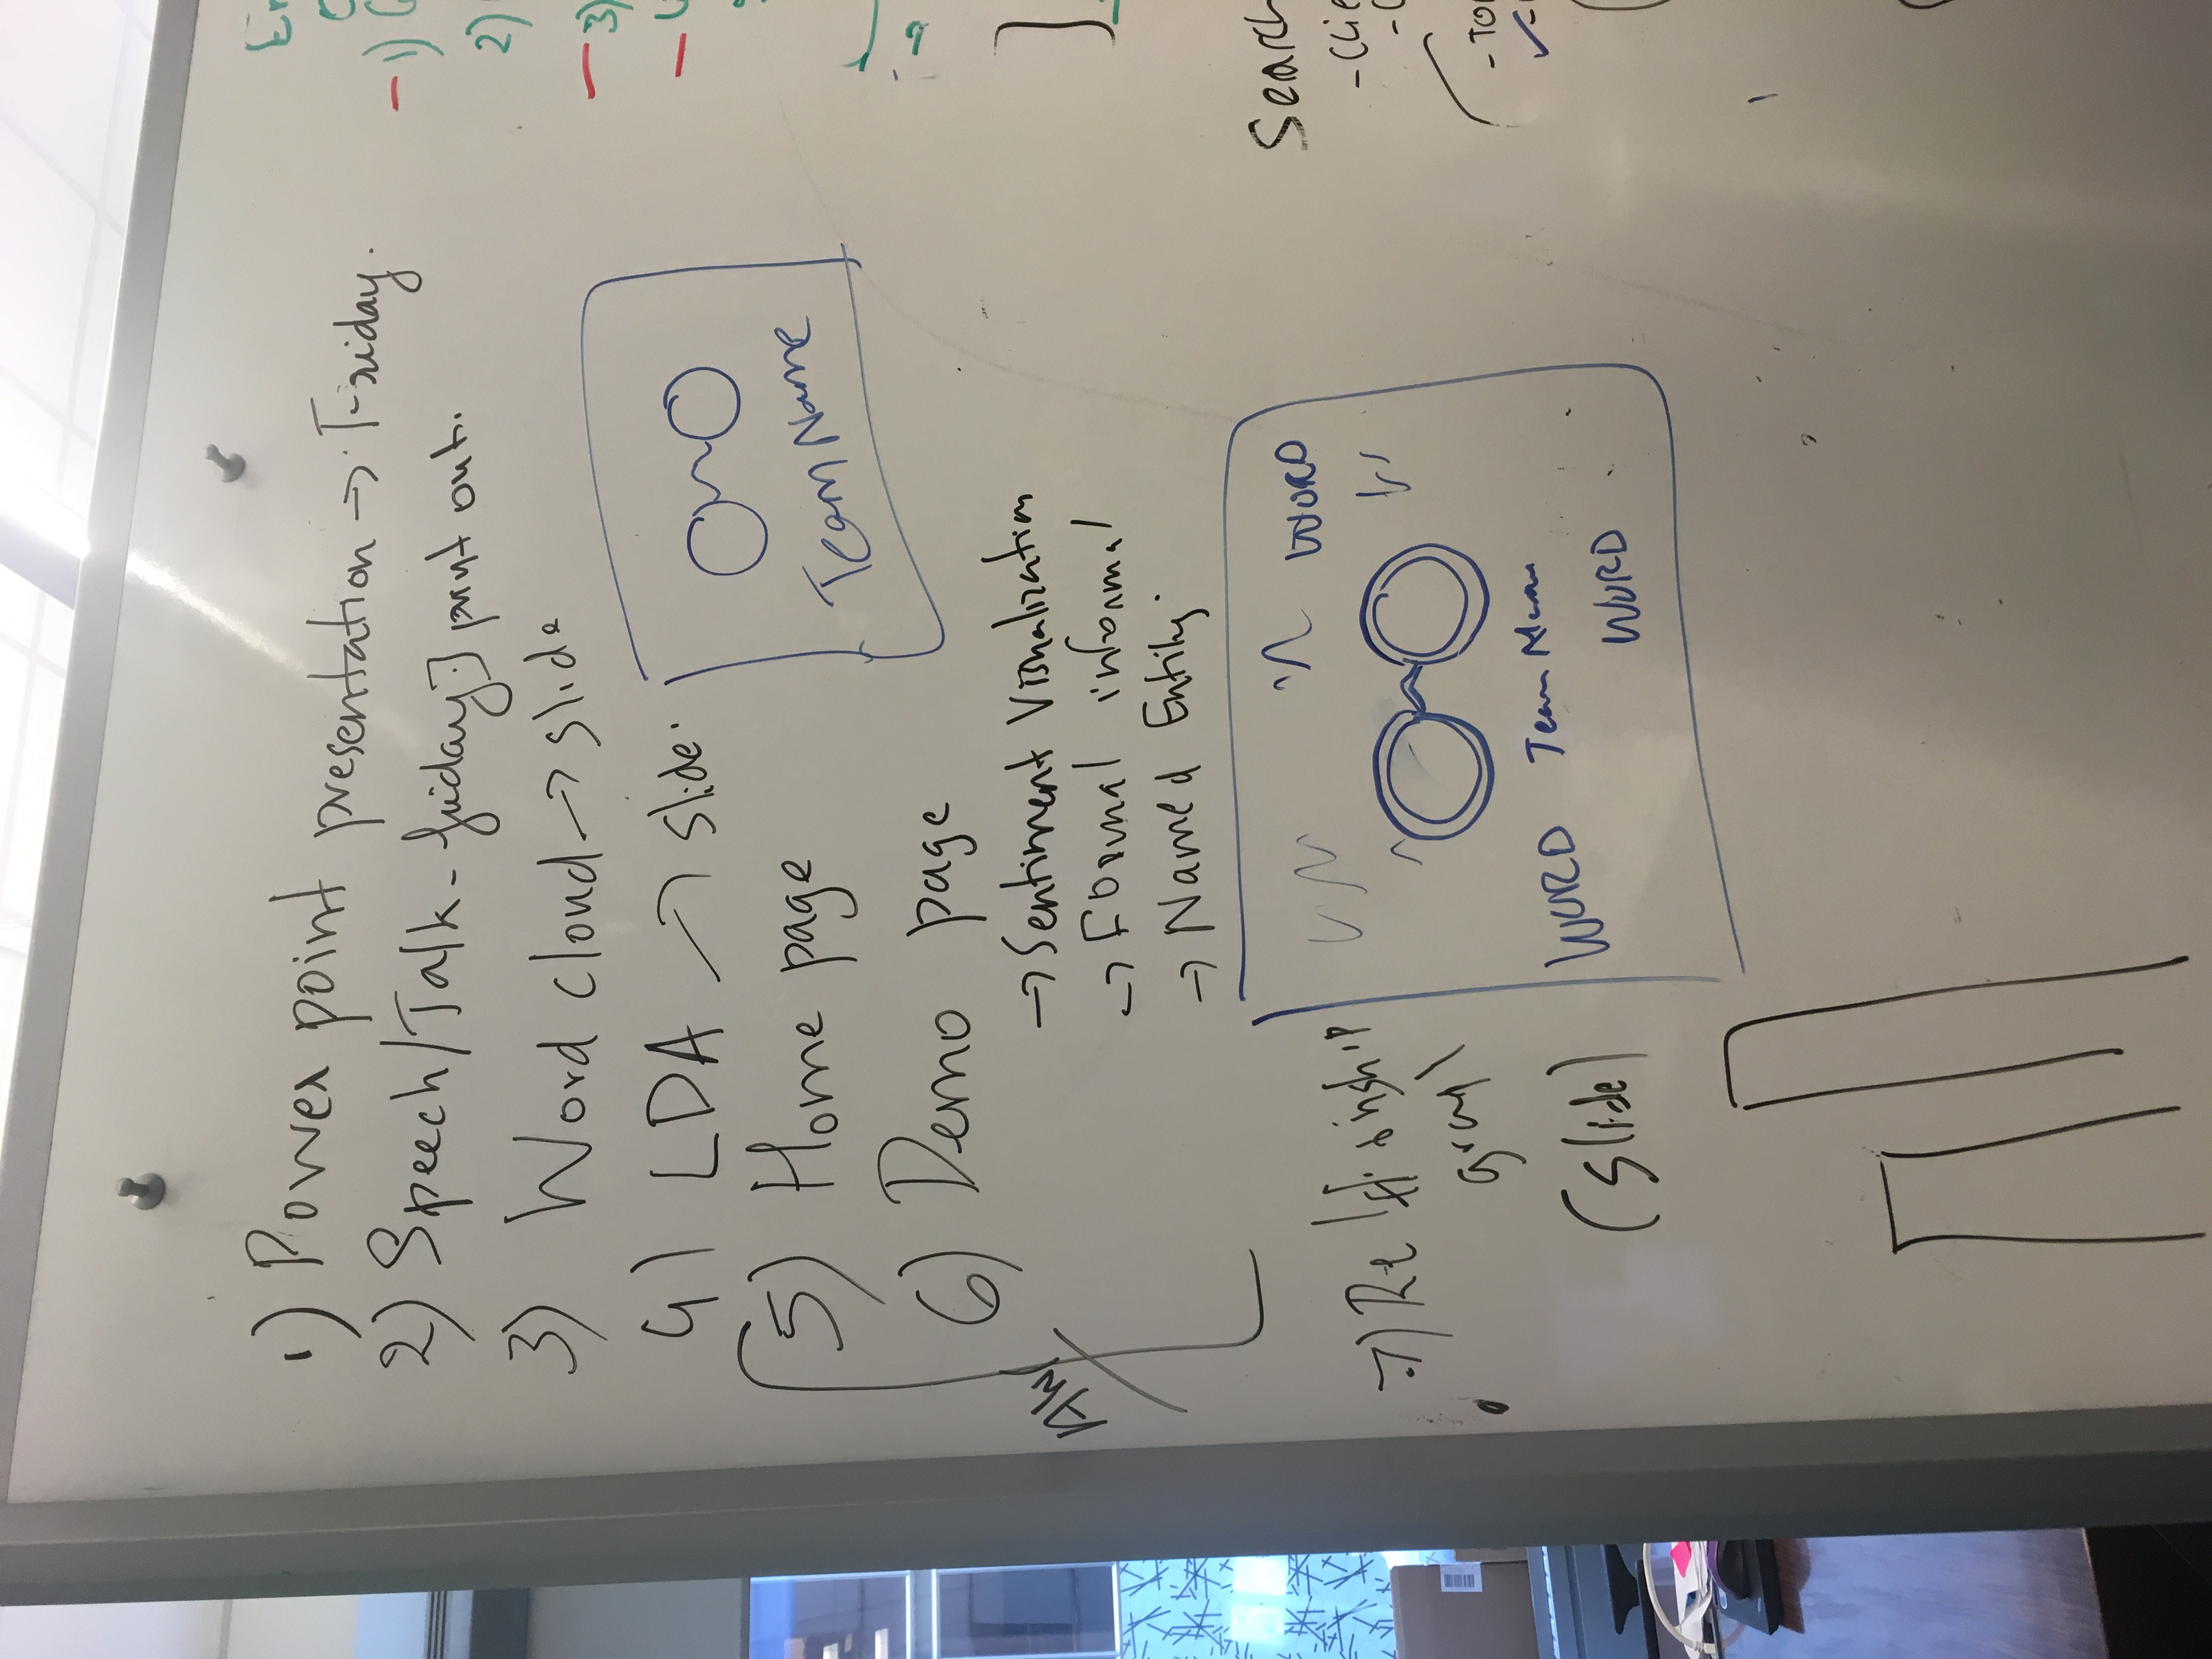 1) Power point presentation → Friday.
2) Speech/Talk - friday.] print out.
3) Word cloud → slide
4) LDA → slide.
5) Home page
Team Name
6) Demo page
→ Sentiment Visualization
→ Formal informal
→ Named Entity.
7) Relationship
graph
(slide)
WORD
WORD
Team Name
WORD
1)
2)
3)
Search